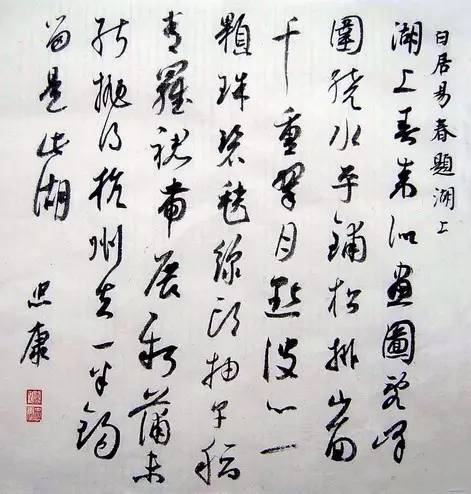 白居易春題湖上
湖上春来似畫圖乱峰
圍繞水平鋪松排山面
千重翠月點波心一
顆珠碧毯線頭抽早稻
青羅裙帶展新蒲未
能拋得杭州去一半鈎
留是此湖
康